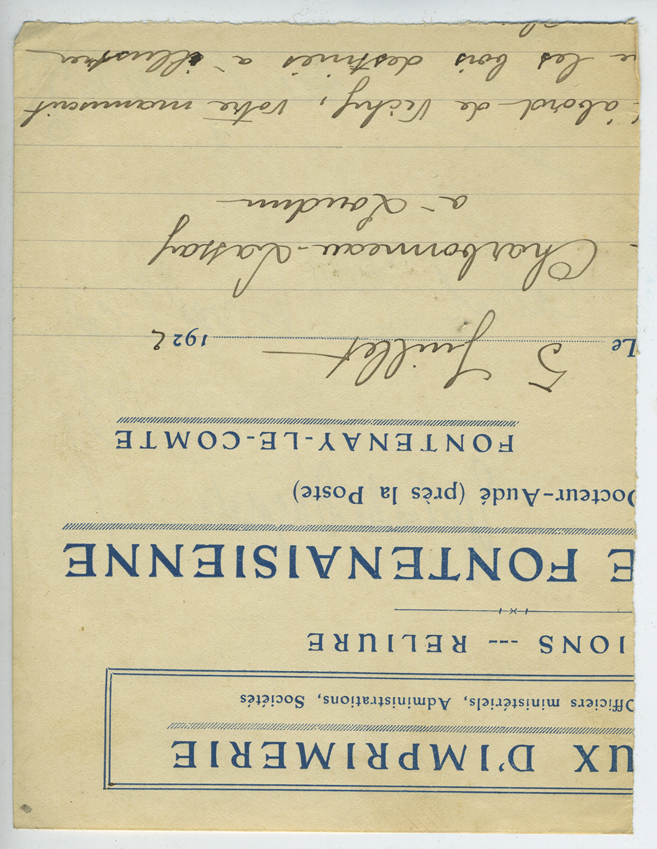 UX D'IMPRIMERIE
Officiers ministériels, Administrations, Sociétés
IONS --- RELIURE
E FONTENAISIENNE
Docteur-Audé (près la Poste)
FONTENAY-LE-COMTE
Le 5 Juillet 1922
Charbonneau-Lassay
à Loudun
d'abord de Vichy, votre manuscrit
e les bois destinés à illustrer